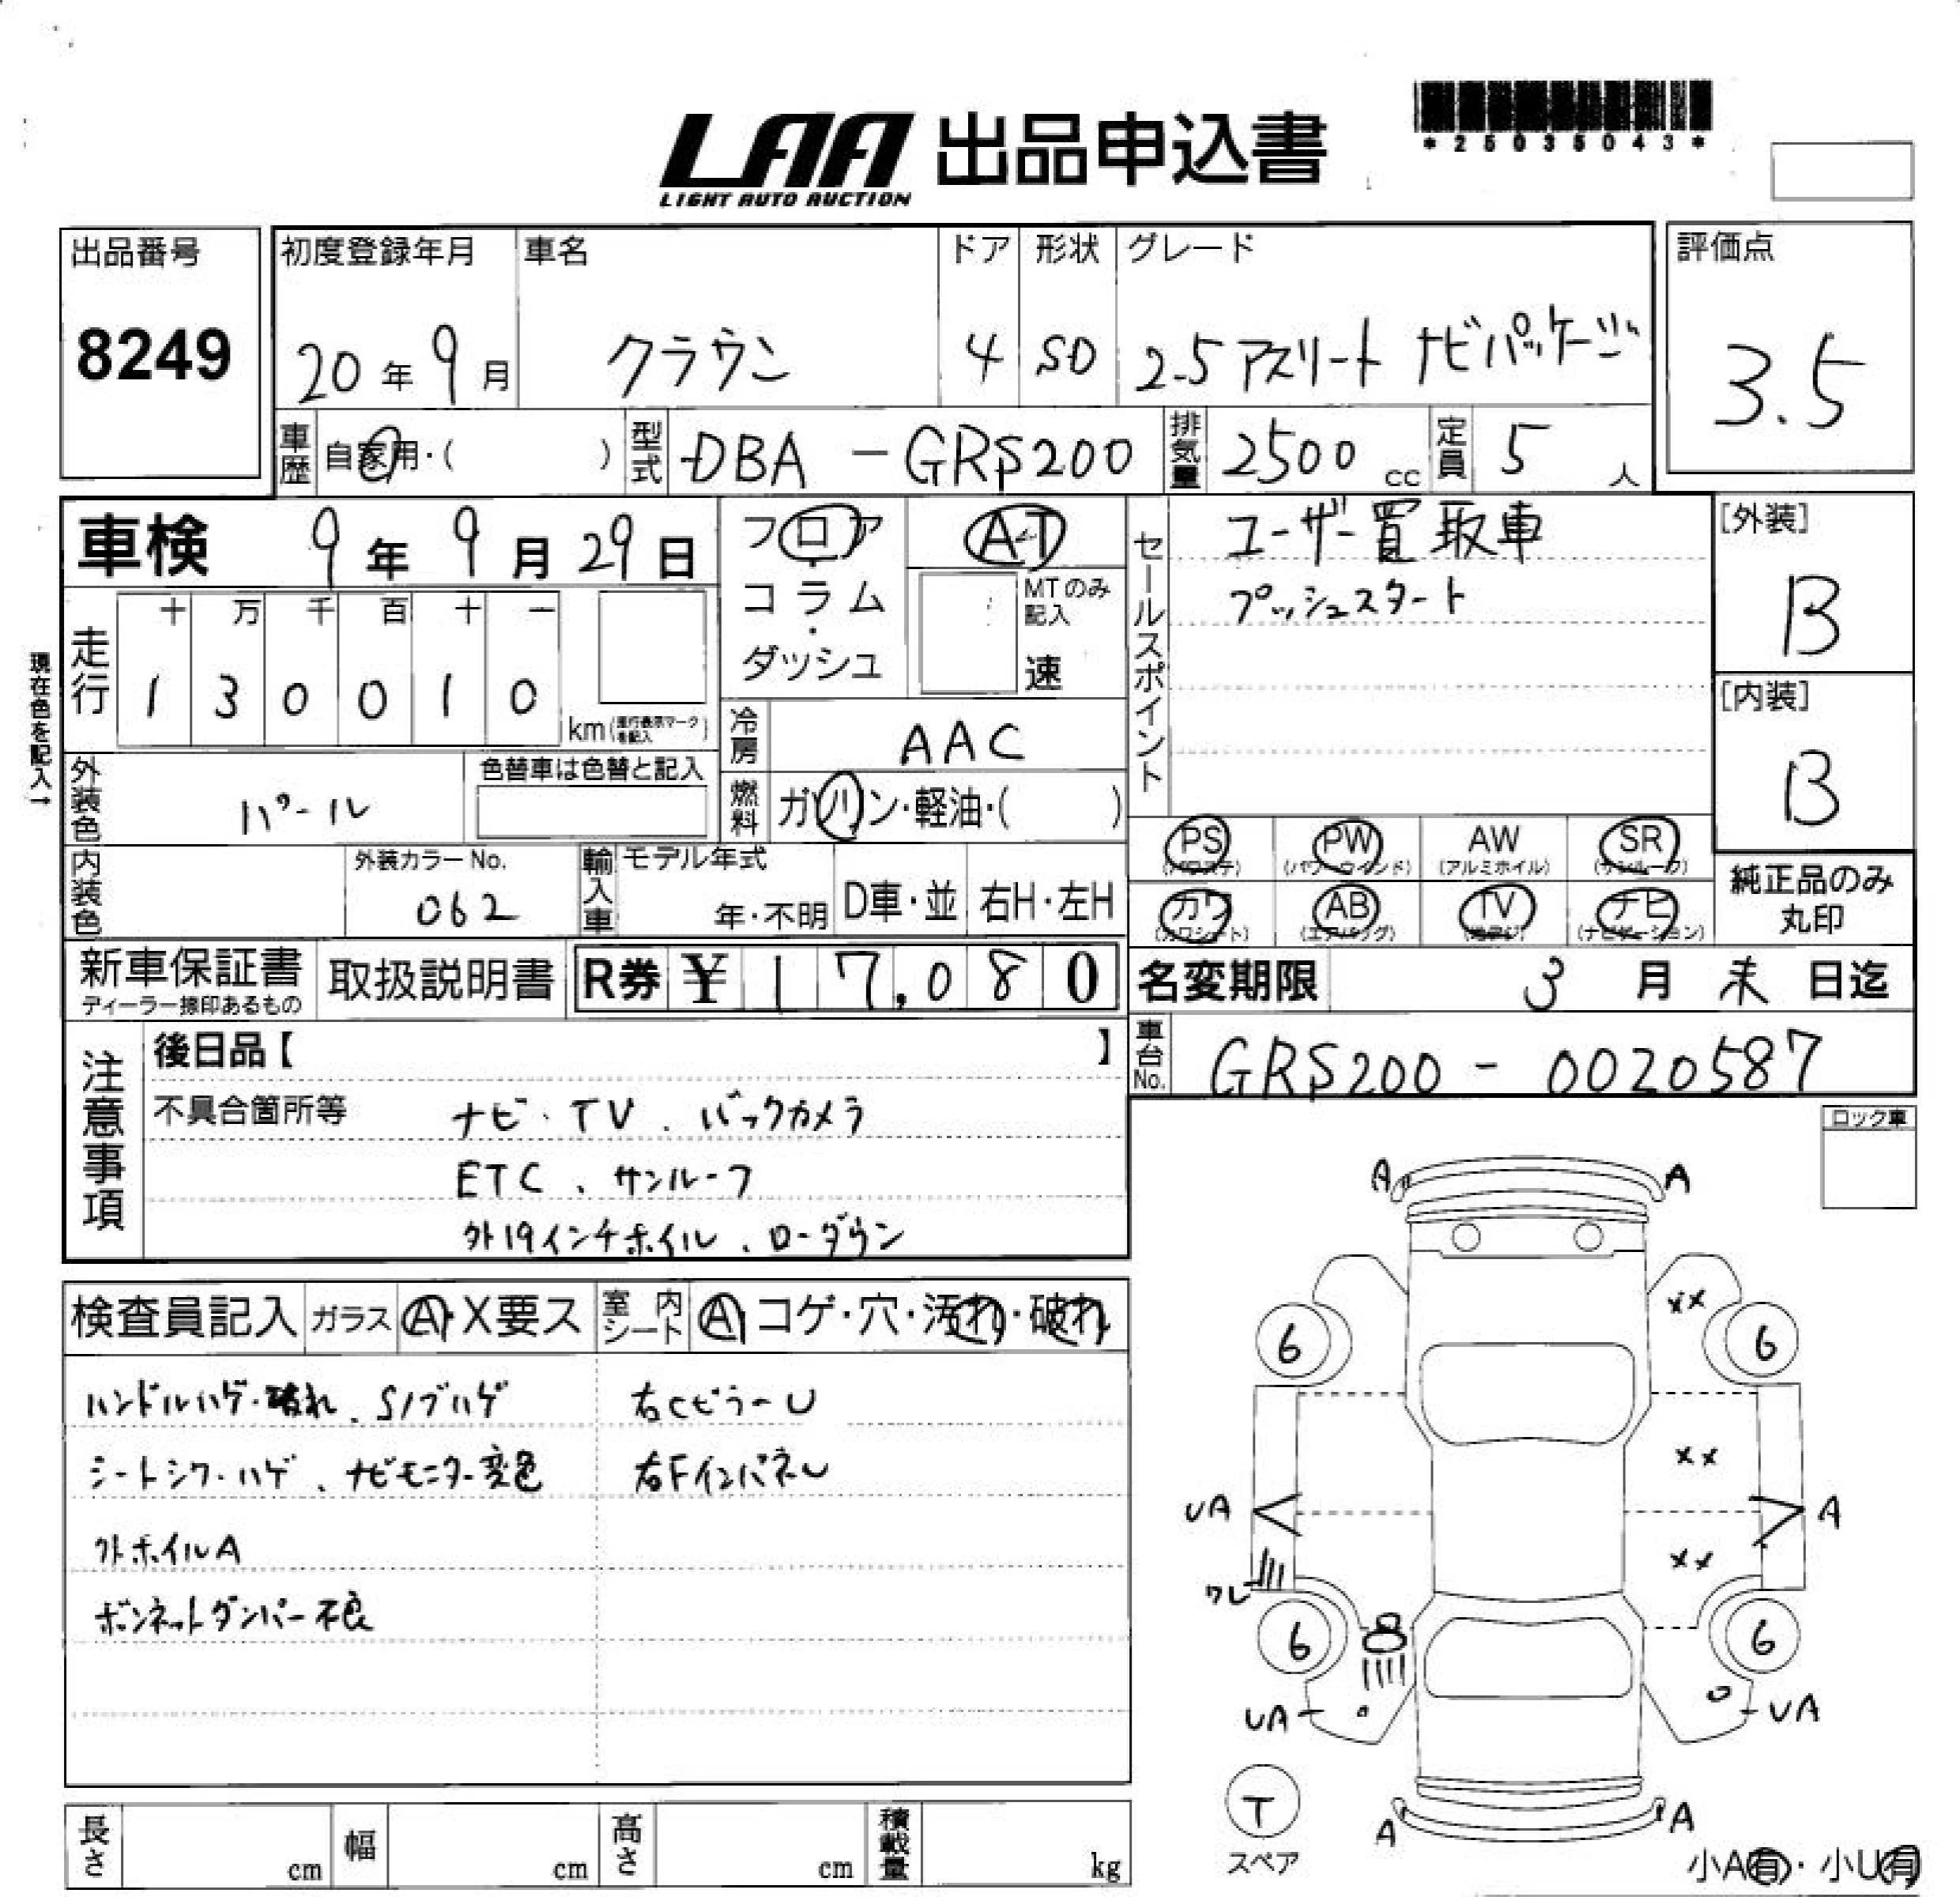 LAA 出品申込書
LIGHT AUTO AUCTION
*25035043*
出品番号
8249
初度登録年月
20年9月
車名
クラウン
ドア
4
形状
SD
グレード
2.5アスリート ナビパッケージ
評価点
3.5
車歴 自家用・( )
型式 DBA-GRS200
排気量 2500cc
定員 5人
車検 9年9月29日
フロア
コラム
・
ダッシュ
AT
MTのみ記入
速
セールスポイント
ユーザー買取車
プッシュスタート
[外装]
B
[内装]
B
現在色を記入→
走行
十 万 千 百 十 一
1 3 0 0 1 0
km(走行表示マークを記入)
冷房 AAC
燃料 ガソリン・軽油・( )
外装色 パール
色替車は色替と記入
内装色
外装カラーNo.
062
輸入車 モデル年式
年・不明
D車・並
右H・左H
PS (パワステ)
PW (パワーウインド)
AW (アルミホイル)
SR (サンルーフ)
カワ (カワシート)
AB (エアバッグ)
TV (地デジ)
ナビ (ナビゲーション)
純正品のみ
丸印
新車保証書
ディーラー捺印あるもの
取扱説明書
R券 ¥17,080
名変期限 3月末日迄
車台No. GRS200-0020587
注意事項
後日品【 】
不具合箇所等
ナビ・TV、バックカメラ
ETC、サンルーフ
外19インチホイル、ローダウン
ロック車
検査員記入
ガラス A・X要ス
室内シート A コゲ・穴・汚れ・破れ
ハンドルハゲ・破れ、S/ブハゲ
右CピラーU
シートシワ・ハゲ、ナビモニター変色
右FインパネU
外ホイルA
ボンネットダンパー不良
A A
XX
6 6
XX
UA A
XX
ワレ
6 6
UA UA
T
スペア
A A
小A有・小U有
長さ cm
幅 cm
高さ cm
積載量 kg